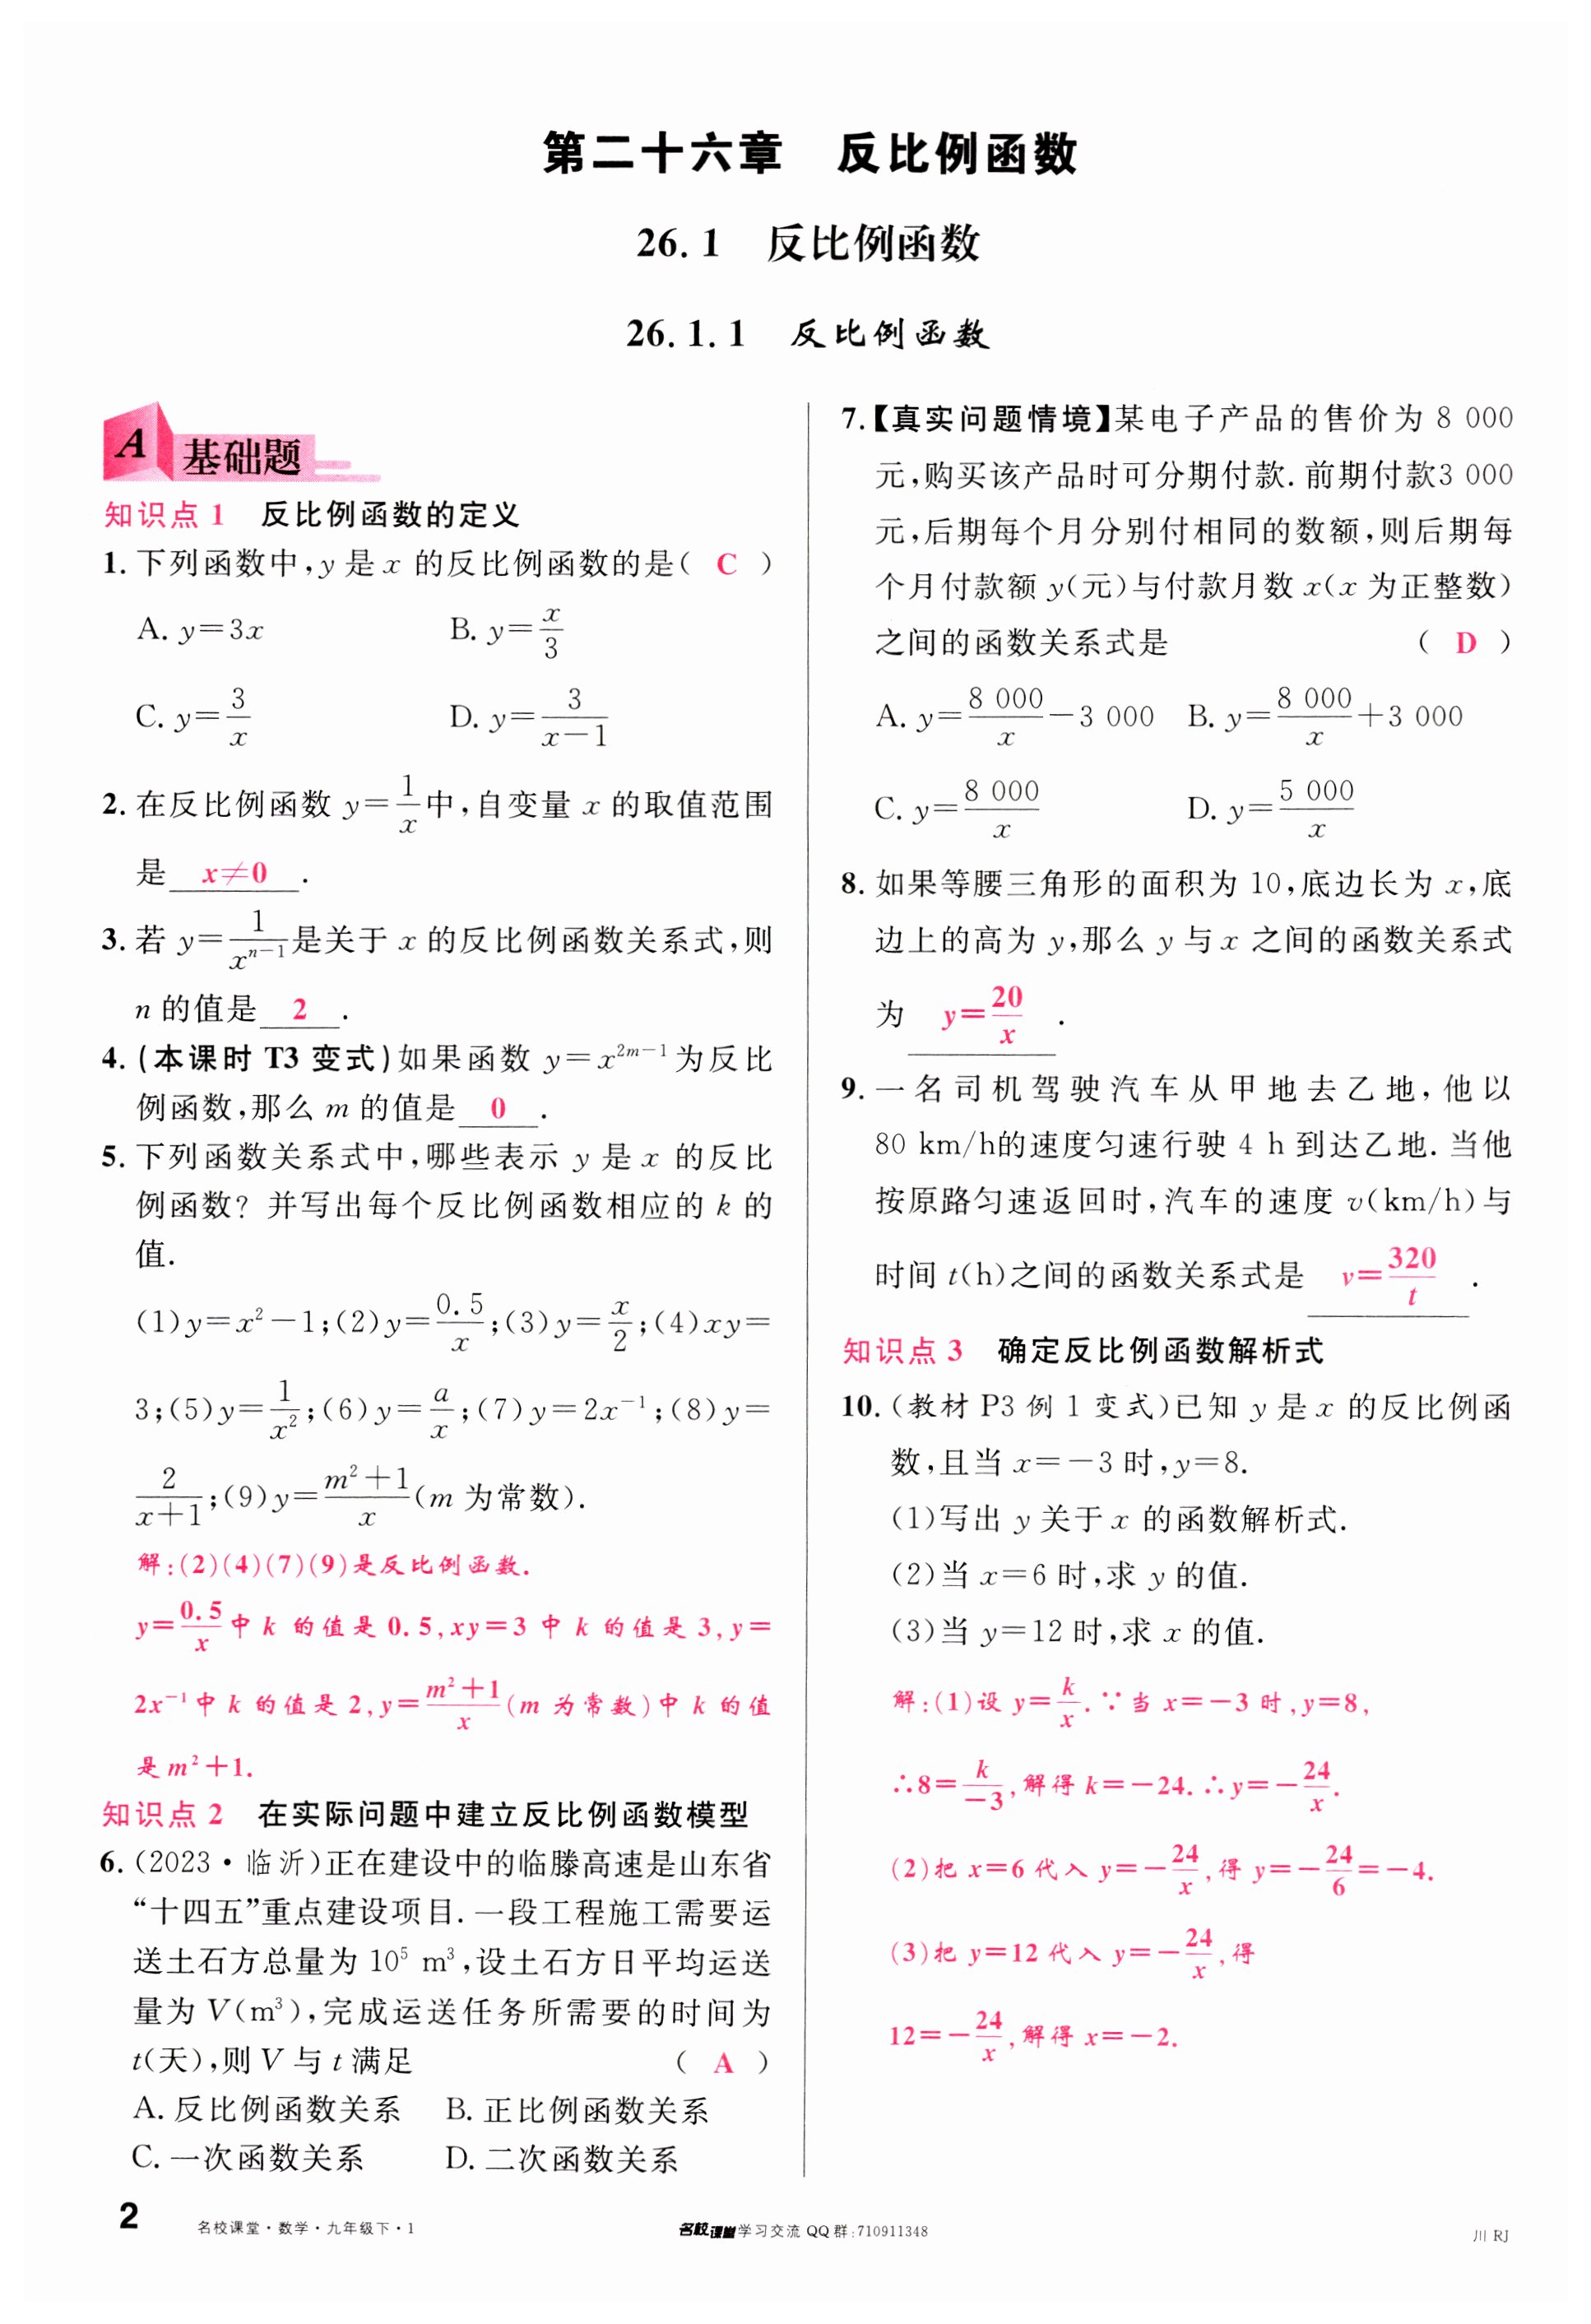 第二十六章　反比例函数
26.1　反比例函数
26.1.1　反比例函数
A 基础题
知识点 1　反比例函数的定义
1. 下列函数中,y 是 x 的反比例函数的是( C )
A. y=3x　B. y=x/3
C. y=3/x　D. y=3/(x-1)
2. 在反比例函数 y=1/x 中,自变量 x 的取值范围
是 x≠0 .
3. 若 y=1/xⁿ⁻¹ 是关于 x 的反比例函数关系式,则
n 的值是 2 .
4. (本课时 T3 变式)如果函数 y=x^(2m-1) 为反比
例函数,那么 m 的值是 0 .
5. 下列函数关系式中,哪些表示 y 是 x 的反比
例函数? 并写出每个反比例函数相应的 k 的
值.
(1)y=x²-1;(2)y=0.5/x;(3)y=x/2;(4)xy=
3;(5)y=1/x²;(6)y=a/x;(7)y=2x⁻¹;(8)y=
2/(x+1);(9)y=(m²+1)/x(m 为常数).
解:(2)(4)(7)(9)是反比例函数.
y=0.5/x 中 k 的值是 0.5,xy=3 中 k 的值是 3,y=
2x⁻¹ 中 k 的值是 2,y=(m²+1)/x(m 为常数)中 k 的值
是 m²+1.
知识点 2　在实际问题中建立反比例函数模型
6. (2023·临沂)正在建设中的临滕高速是山东省
“十四五”重点建设项目. 一段工程施工需要运
送土石方总量为 10⁵ m³,设土石方日平均运送
量为 V(m³),完成运送任务所需要的时间为
t(天),则 V 与 t 满足　( A )
A. 反比例函数关系　B. 正比例函数关系
C. 一次函数关系　D. 二次函数关系
7.【真实问题情境】某电子产品的售价为 8 000
元,购买该产品时可分期付款. 前期付款3 000
元,后期每个月分别付相同的数额,则后期每
个月付款额 y(元)与付款月数 x(x 为正整数)
之间的函数关系式是　( D )
A. y=8 000/x-3 000　B. y=8 000/x+3 000
C. y=8 000/x　D. y=5 000/x
8. 如果等腰三角形的面积为 10,底边长为 x,底
边上的高为 y,那么 y 与 x 之间的函数关系式
为 y=20/x .
9. 一名司机驾驶汽车从甲地去乙地,他以
80 km/h的速度匀速行驶 4 h 到达乙地. 当他
按原路匀速返回时,汽车的速度 v(km/h)与
时间 t(h)之间的函数关系式是 v=320/t .
知识点 3　确定反比例函数解析式
10. (教材 P3 例 1 变式)已知 y 是 x 的反比例函
数,且当 x=-3 时,y=8.
(1)写出 y 关于 x 的函数解析式.
(2)当 x=6 时,求 y 的值.
(3)当 y=12 时,求 x 的值.
解:(1)设 y=k/x.∵当 x=-3 时,y=8,
∴8=k/-3,解得 k=-24.∴y=-24/x.
(2)把 x=6 代入 y=-24/x,得 y=-24/6=-4.
(3)把 y=12 代入 y=-24/x,得
12=-24/x,解得 x=-2.
2　名校课堂·数学·九年级下·1　名校课堂学习交流 QQ 群:710911348　川 RJ